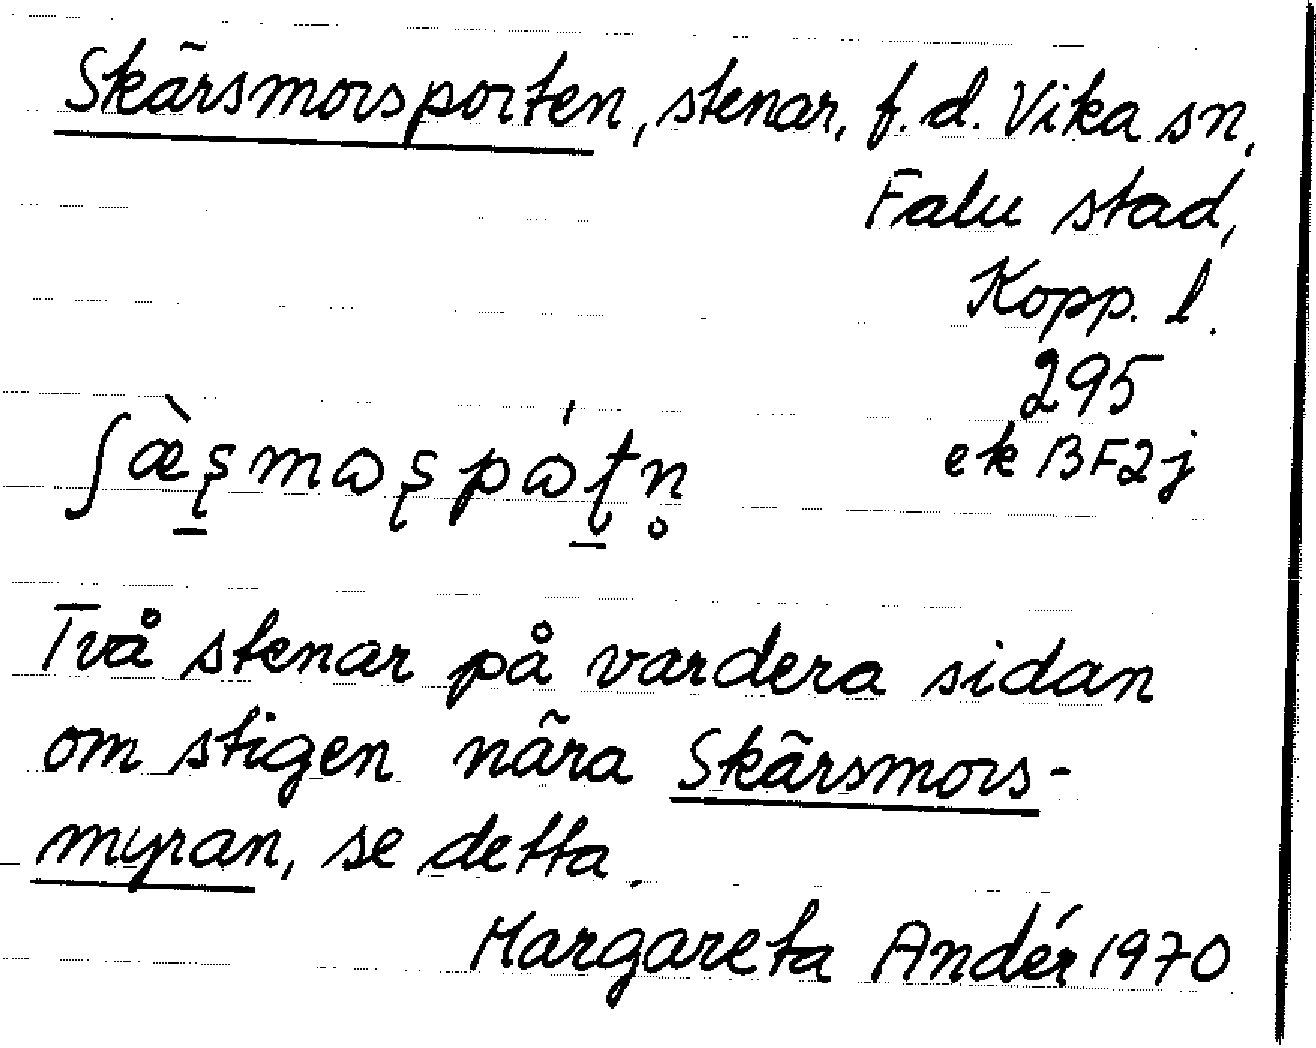 Skärsmorsporten, stenar, f.d. Vika sn,
Falu stad,
Kopp. l.
295
ek BF2j
ʃæ̀ʂmɷʂpɷ́ʈn̥
Två stenar på vardera sidan
om stigen nära Skärsmors-
myran, se detta.
Margareta Andér 1970